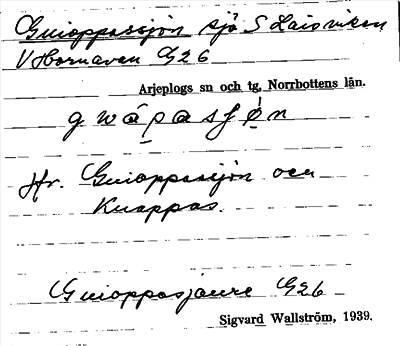 Guioppassjön sjö S Laisviken
V Hornavan G26
Arjeplogs sn och tg, Norrbottens län.
g w á p a s ʃ ö́ n
Jfr. Guioppassjön och
Kuappas.
Guioppasjaure G26
Sigvard Wallström, 1939.